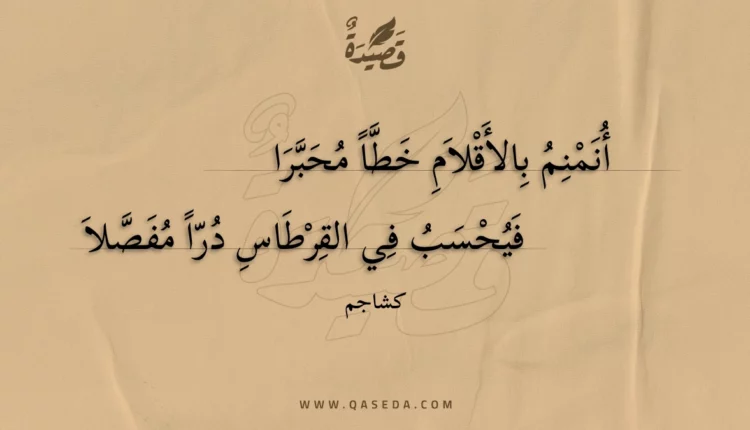 قَصِيْدَةٌ
أُنَمْنِمُ بِالأَقْلاَمِ خَطَّاً مُحَبَّرَا
فَيُحْسَبُ فِي القِرْطَاسِ دُرّاً مُفَصَّلاَ
كشاجم
WWW.QASEDA.COM